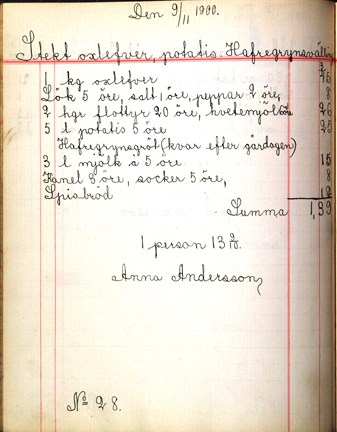 Den 9/11 1900.
Stekt oxlefver, potatis. Hafregrynsvälling
1 kg oxlefver
Lök 5 öre, salt 1 öre, peppar 2 öre, 8
2 hgr flottyr 20 öre, hvetemjöl 6 öre 26
5 l potatis 5 öre 25
Hafregrynsgröt (kvar efter gårdagen)
3 l mjölk à 5 öre 15
Kanel 3 öre, socker 5 öre, 8
Spisbröd 12
Summa 1,39
1 person 13 9/10.
Anna Andersson,
No 28.